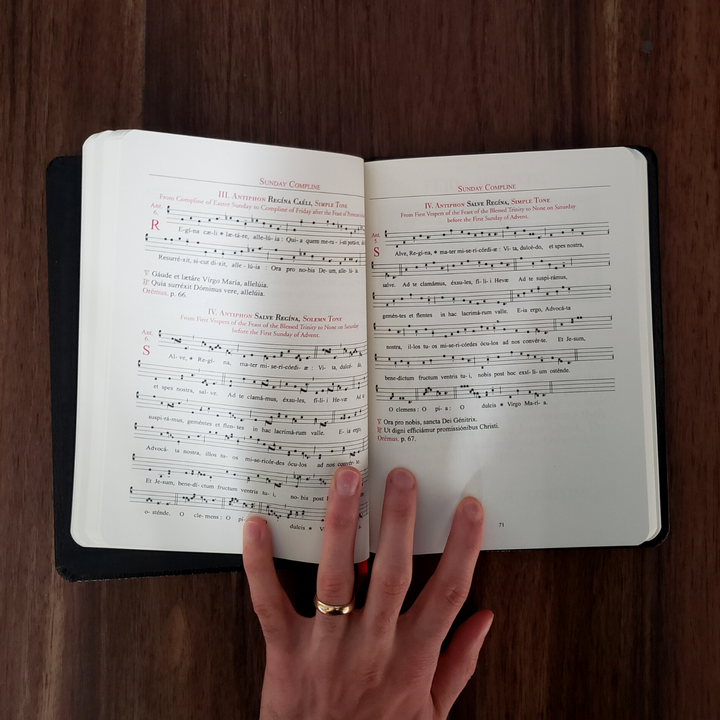 Sunday Compline
III. Antiphon Regína Cæli, Simple Tone
From Compline of Easter Sunday to Compline of Friday after the Feast of Pentecost
Ant.
6.
R
E-gí-na cæ-li * læ-tá-re, alle-lú-ia : Qui-a quem me-ru-
Resurré-xit, si-cut di-xit, alle-lú-ia : Ora pro no-bis De-um, alle-lú-ia.
℣ Gáude et lætáre Virgo María, allelúia.
℟ Quia surréxit Dóminus vere, allelúia.
Orémus, p. 66.
IV. Antiphon Salve Regína, Solemn Tone
From First Vespers of the Feast of the Blessed Trinity to None on Saturday
before the First Sunday of Advent.
Ant.
S
Al-ve, * Re-gí- na, ma-ter mi-se-ri-córdi- æ : Vi- ta, dulcé- do,
et spes nostra, sal- ve. Ad te clamá-mus, éxsu-les, fí-li- i He-væ Ad te
suspi-rá-mus, geméntes et flen-tes in hac lacrimá-rum valle. E- ia ergo,
Advocá- ta nostra, illos tu- os mi-se-ricór-des ócu-los ad nos convér-te.
Et Je-sum, bene-dí-ctum fructum ventris tu- i, no-bis post
o- sténde. O cle-mens : O pi- dulcis *
Sunday Compline
IV. Antiphon Salve Regína, Simple Tone
From First Vespers of the Feast of the Blessed Trinity to None on Saturday
before the First Sunday of Advent.
Ant.
5.
S
Alve, Re-gí-na, * ma-ter mi-se-ri-córdi-æ : Vi- ta, dulcé-do, et spes nostra,
salve. Ad te clamámus, éxsu-les, fí- li- i Hevæ Ad te suspi-rámus,
gemén-tes et flentes in hac lacrimá-rum valle. E-ia ergo, Advocá-ta
nostra, il-los tu- os mi-se-ri-córdes ócu-los ad nos convér-te. Et Je-sum,
bene-díctum fructum ventris tu- i, nobis post hoc exsí-li- um osténde.
O clemens : O pi- a : O dulcis * Virgo Ma-rí- a.
℣ Ora pro nobis, sancta Dei Génitrix.
℟ Ut digni efficiámur promissiónibus Christi.
Orémus, p. 67.
71